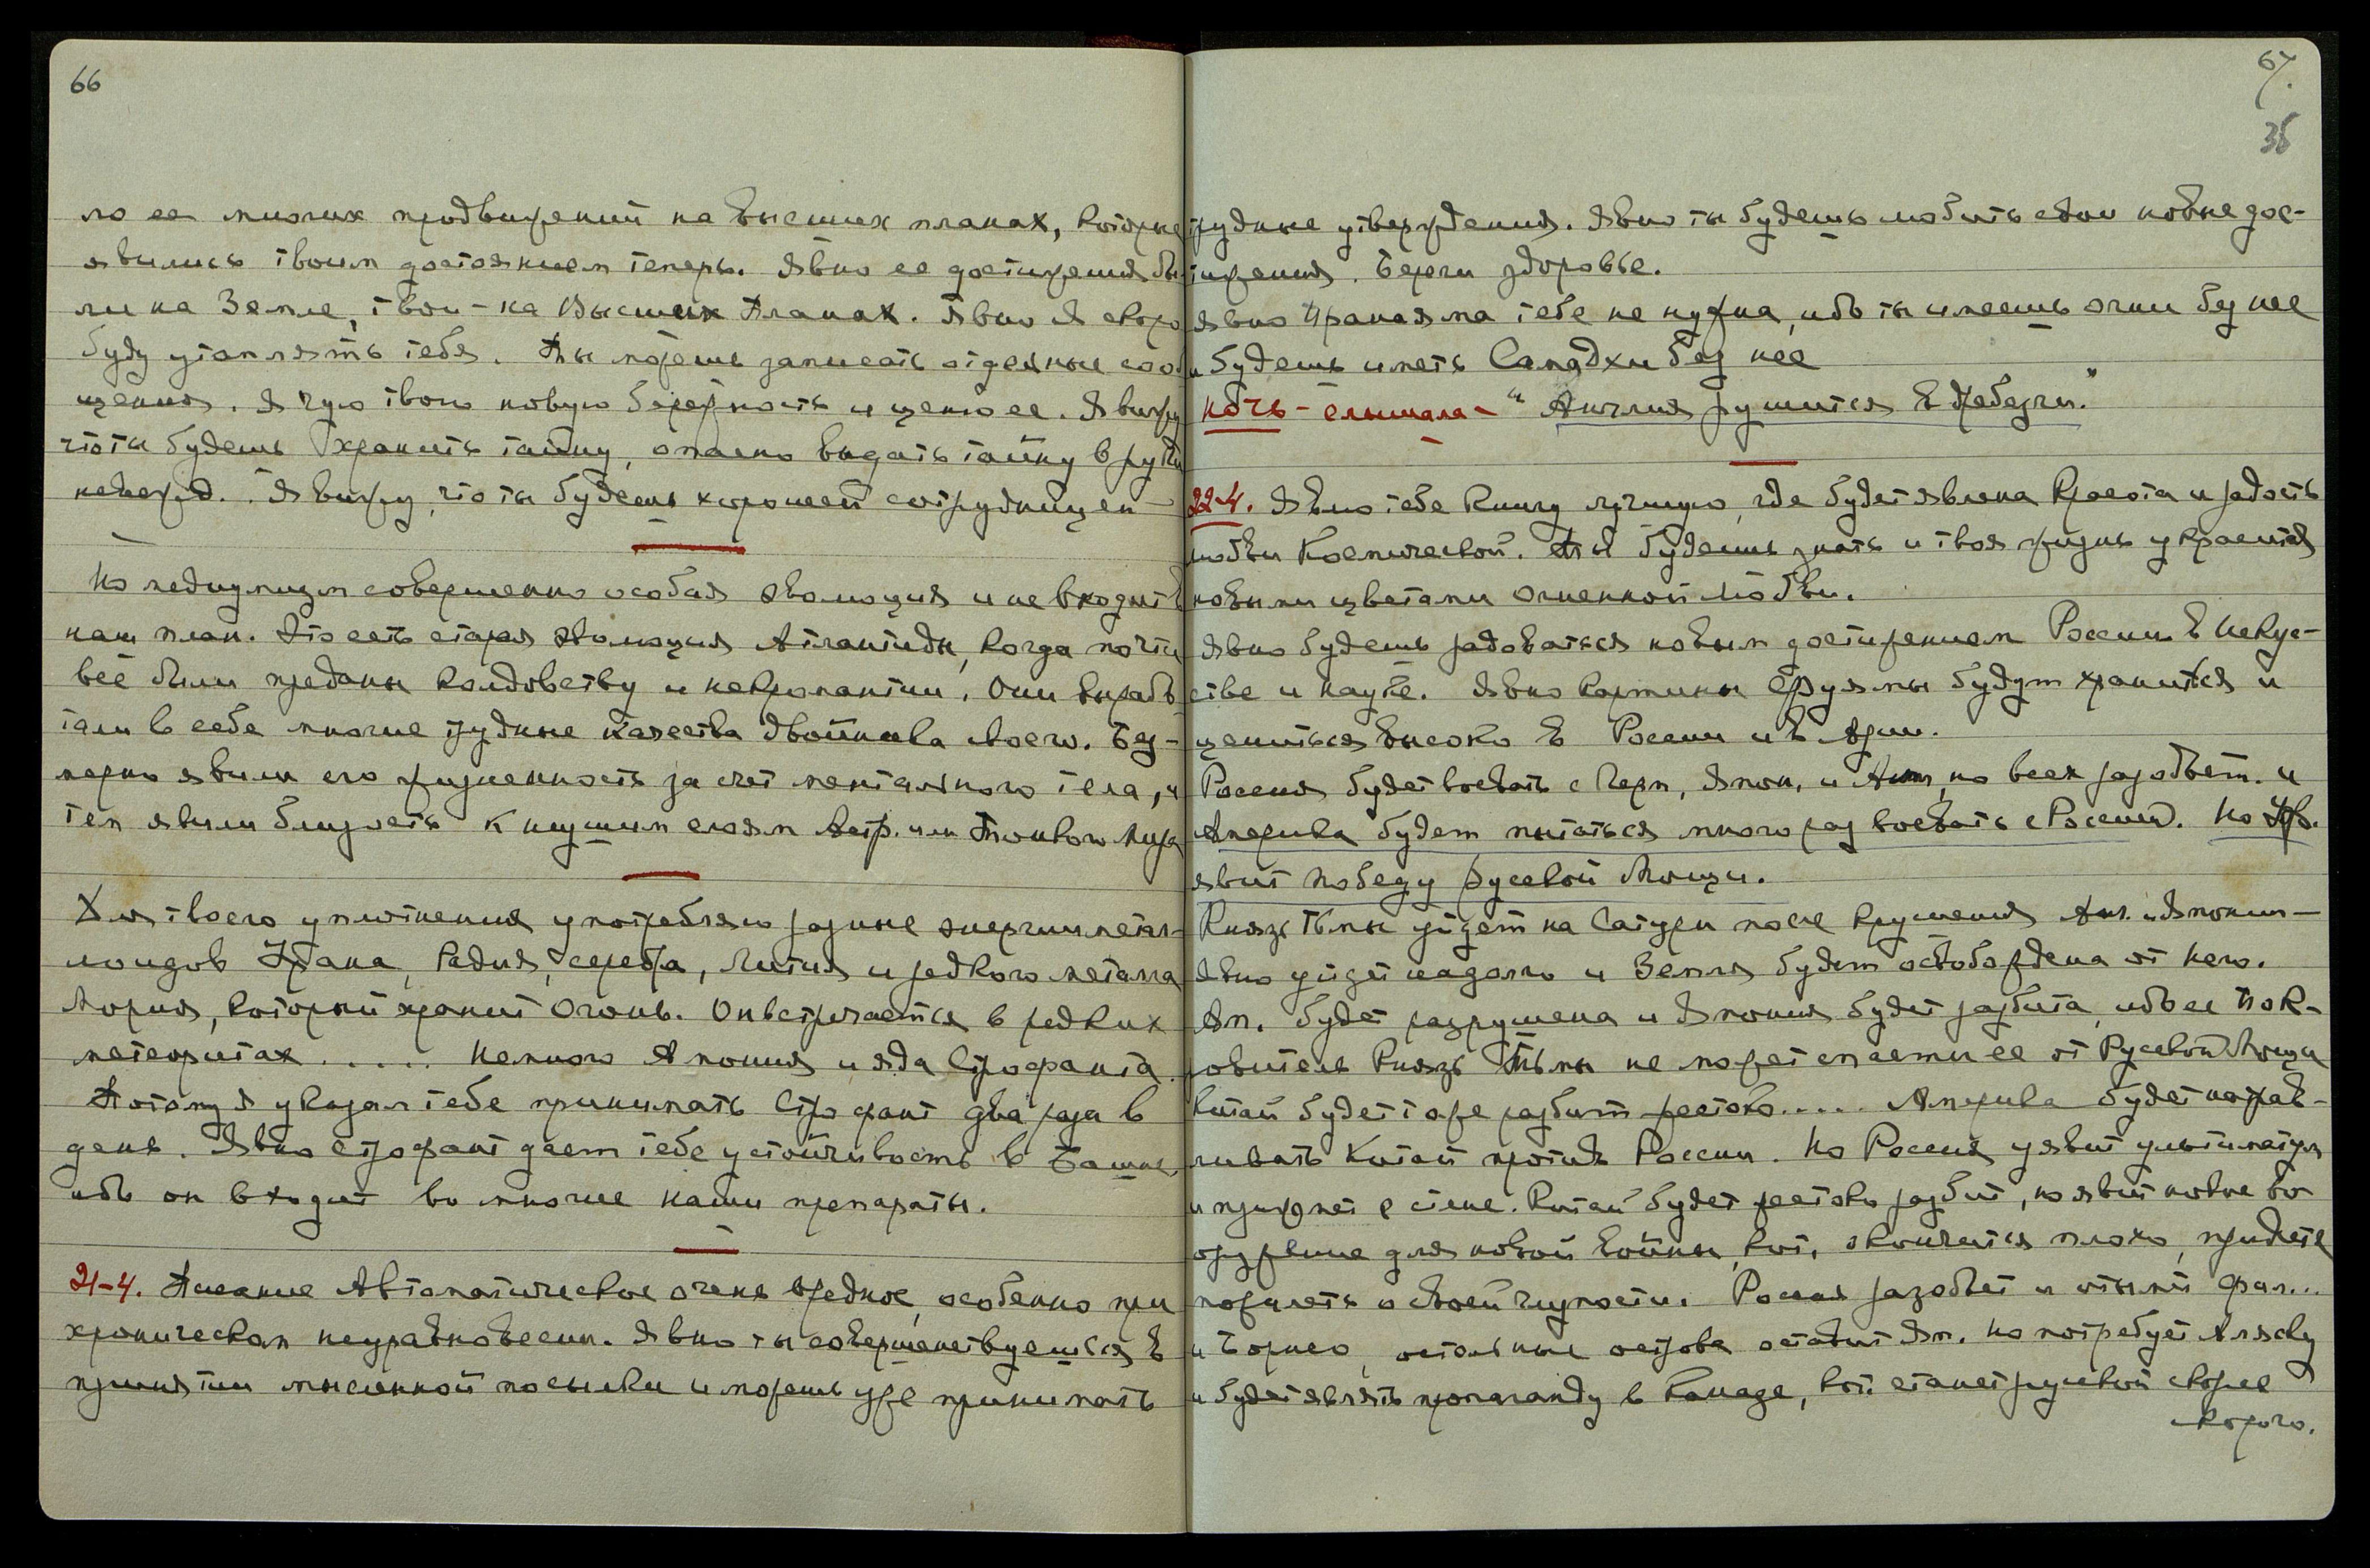 66
ло ее многих продвижений на высших планах, которые
явились твоим достоянием теперь. Явно ее достижения бы-
ли на Земле, твои - на Высших Планах. Явно Я скоро
буду утомлять тебя. Ты можешь записать отдельные сооб
щения. Я чую твою новую бережность и ценю ее. Я вижу
что ты будешь хранить тайну, опасно выдать тайну в руки
невежд. Я вижу, что ты будешь хорошей сотрудницей —
Но медиумизм совершенно особая эволюция и не входит в
наш план. Это есть старая эволюция Атлантиды, когда почти
все были преданы колдовству и некромантии. Они вырабо
тали в себе многие трудные качества двойника своего. Без-
мерно явили его жизненность за счет ментального тела, и
тем явили близость к низшим слоям Астр. или Тонкого Мира
Для твоего уплотнения употребляю разные энергии метал-
лоидов Урана, Радия, серебра, Лития и редкого металла
Мория, который хранит Огонь. Он встречается в редких
метеоритах ..... Немного Амония и яда Строфанта.
Потому Я указал тебе принимать Строфант два раза в
день. Явно строфант дает тебе устойчивость в Башне,
ибо он входит во многие наши препараты.
21-4. Писание Автоматическое очень вредное, особенно при
хроническом неуравновесии. Явно ты совершенствуешься в
принятии мысленной посылки и можешь уже принимать
67.
36
трудные утверждения. Явно ты будешь любить свои новые дос-
тижения. Береги здоровье.
Явно Пранаяма тебе не нужна, ибо ты имеешь огни без нее
и будешь иметь Самадхи без нее
Ночь - слышала - "Англия рушится в
22-4. Явлю тебе Книгу лучшую, где будет явлена Красота и радость
любви Космической. Ты будешь знать и твоя жизнь украсится
новыми цветами Огненной Любви.
Явно будешь радоваться новым достижением России в Искус-
стве и науке. Явно картины Фуямы будут храниться и
цениться высоко в России и в Азии.
Россия будет воевать с Герм, Япон, и Англ, но всех разобьет. и
Америка будет пытаться много раз воевать с Россией. Но Ур.
явит победу русской Мощи.
Князь Тьмы уйдет на Сатурн после крушения Анг. и Японии —
Явно уйдет надолго и Земля будет освобождена от него.
Ан. будет разрушена и Япония будет разбита, ибо ее Пок-
ровитель Князь Тьмы не может спасти ее от Русской Мощи
Китай будет тоже разбит жестоко ..... Америка будет натрав-
ливать Китай против России. Но Россия уявит ультиматум
и прижмет к стене. Китай будет жестоко разбит, но явит новое во
оружение для новой войны, кот. окончится плохо, придется
пожалеть о своей глупости. Россия разобьет и отымет Фил...
и Борнео, остальные острова оставит Яп. но потребует Аляску
и будет являть пропаганду в Канаде, кот. станет русской скорее
скорого.